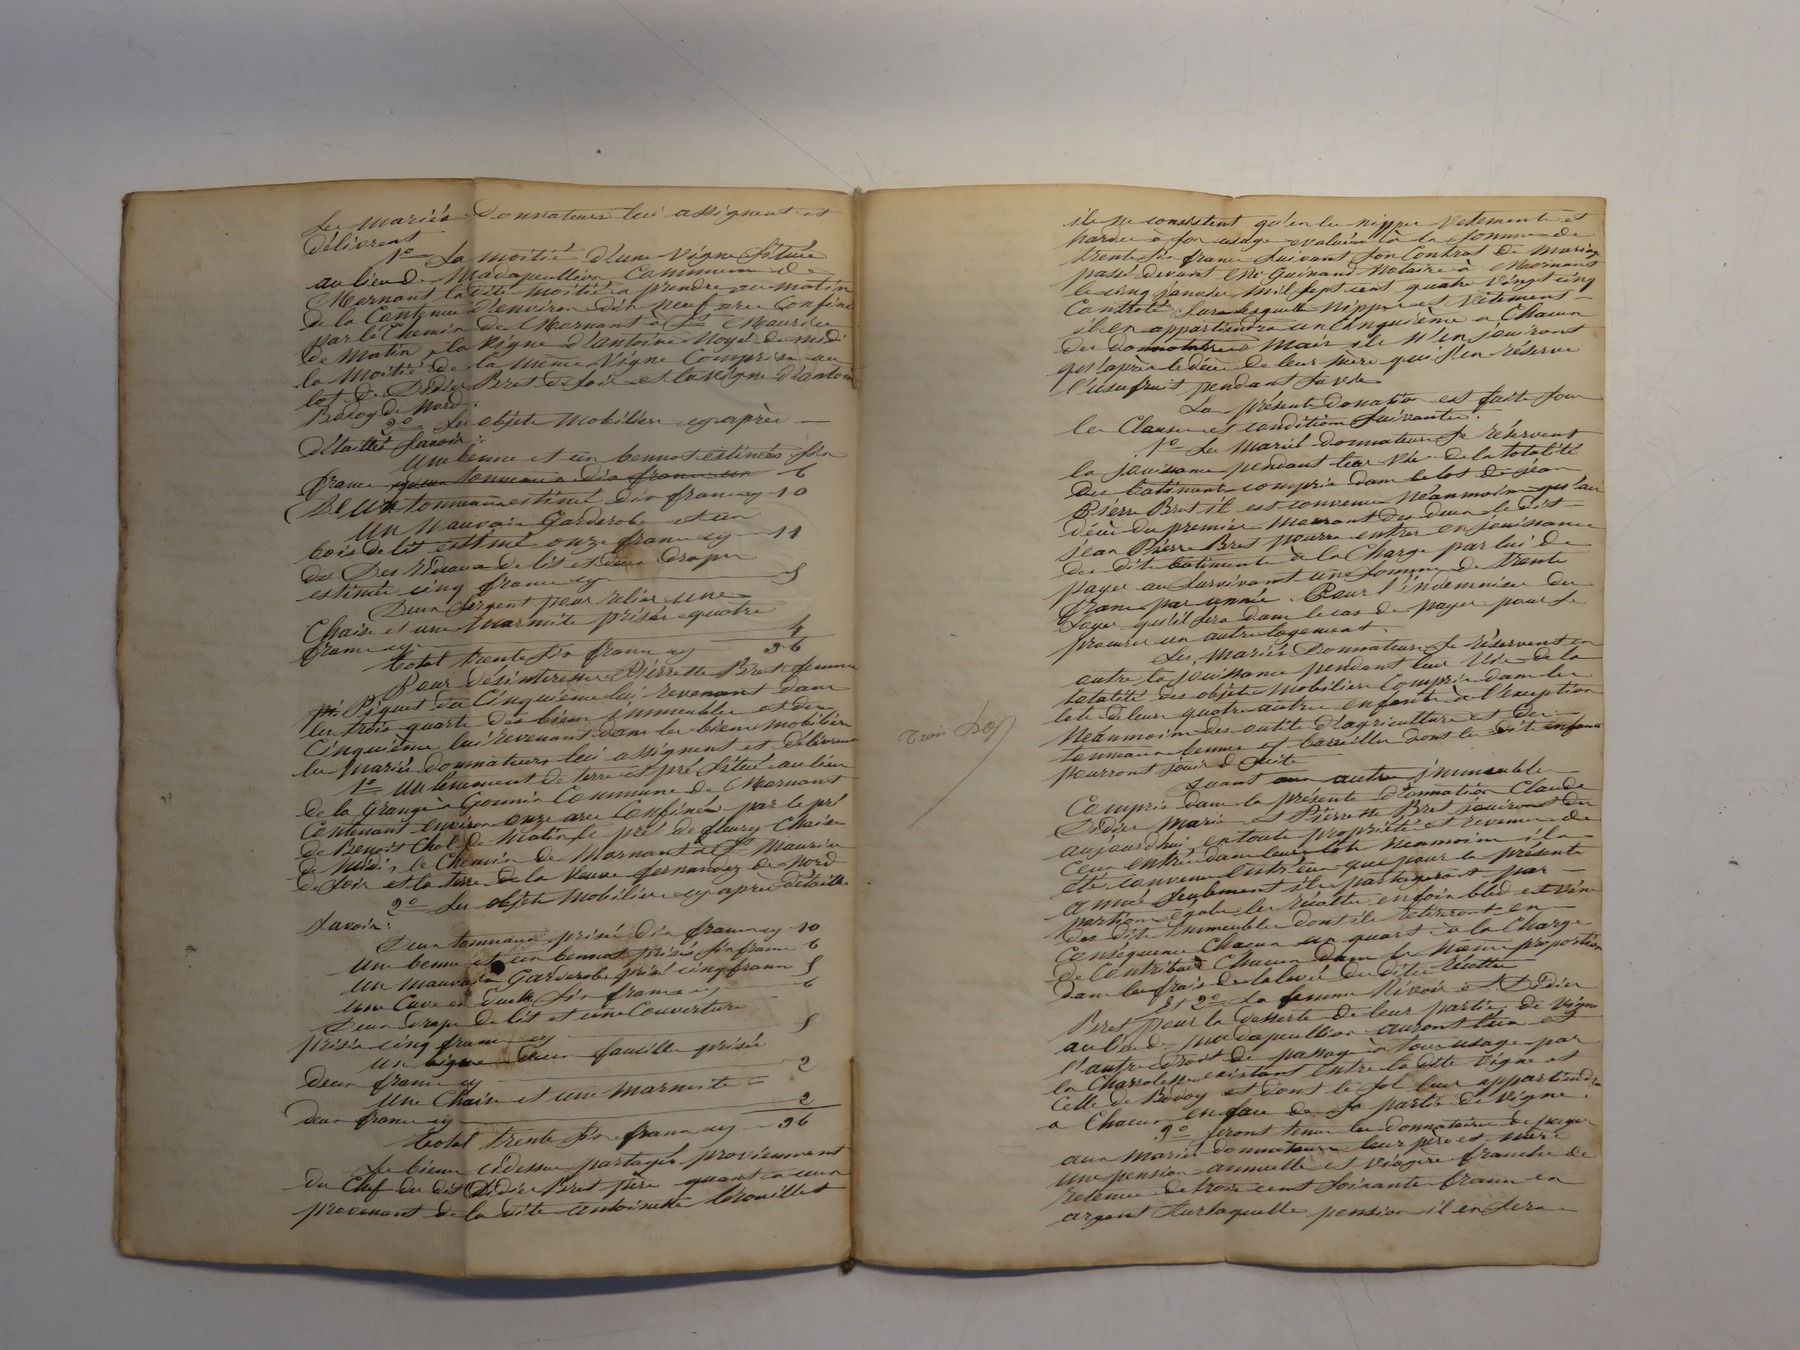 Les mariés Donnateurs lui assignent et
délivrent
1º La moitié d'une Vigne Située
au lieu de Madapeullion Commune de
Mornant la dite moitié à prendre au matin
de la Contenue d'environ dix neuf ares Confiné
par le Chemin de Mornant à St Maurice
de Matin, la Vigne d'antoine Noyé de midi
la Moitié de la même Vigne Comprise au
lot de Didier Bret de Soir et la vigne d'antoine
Bodoy de Nord.
2º Les objets Mobiliers cy après
détaillés Savoir:
Une benne et un bennot estimés six
francs 6
Un tonneau estimé dix francs cy 10
Un Mauvais Garderobe et un
bois de lit estimé onze francs cy 11
Des Rideaux de lit et deux draps
estimés cinq francs cy 5
Deux Sergent pour relier une
Chaise et une Marmite prisés quatre
francs cy 4
Total trente six francs cy 36
Pour désintéresser Pierrette Bret femme
Piquet du Cinquième lui revenant dans
les trois quarts des biens immeubles et du
Cinquième lui revenant dans les biens mobiliers
les Mariés donnateurs lui assignent et délivrent
1º Un tènement de terre et pré Situé au lieu
de la Grange à Gonnin Commune de Mornant
Contenant environ onze ares Confiné par le pré
de Benoit Chol de Matin le pré de fleury Chaise
de Midi, le Chemin de Mornant à St Maurice
de Soir et la terre de la Veuve fernandez de Nord
2º Les objets Mobiliers cy après détaillés
Savoir:
Deux tonneaux prisés dix francs cy 10
Une benne et un bennot prisés six francs 6
Un mauvais Garderobe prisé cinq francs 5
Une Cuve en six francs cy 6
Deux draps de lit et une Couverture
prisés cinq francs cy 5
Une deux faucille prisés
deux francs cy 2
Une Chaise et une Marmite
deux francs cy 2
Total trente six francs cy 36
Les biens cidessus partagés proviennent
du Chef du dit Didier Bret père quant à ceux
provenant de la dite antoinette trouillet
ils ne consistent qu'en les nippes Vetements et
hardes à son usage evalués à la Somme de
trente six francs Suivant son Contrat de Mariage
passé devant Me Guinand Notaire à Mornant
le cinq janvier mil sept cent quatre vingt cinq
Controlé Sur lesquelles Nippes et Vêtements
il en appartiendra un Cinquième a Chacun
des donnataires Mais ils N'en jouiront
qu'après le décès de leur mère qui S'en réserve
l'usufruit pendant Sa vie
La présente donation est faite Sous
les Clauses et condition Suivantes:
1º Les Mariés Donnateurs Se réservent
la jouissance pendant leur Vie de la totalité
Des batiments compris dans le lot de jean
Pierre Bret il est convenu Néanmoins qu'au
décès du premier Mourant des deux le dit
jean Pierre Bret pourra entrer en jouissance
des dits batiments à la Charge par lui de
payer au Survivant une Somme de trente
francs par année. Pour l'indemniser du
Loyer qu'il Sera dans le cas de payer pour Se
procurer un autre logement.
Les Mariés Donnateurs Se réservent en
outre la jouissance pendant leur Vie de la
totalité des objets Mobiliers Compris dans les
lots de leurs quatre autres enfants à l'exception
Néanmoins des outils d'agriculture et des
tonneaux bennes et barreilles dont les dits enfans
pourront jouir de Suite
Quant aux autres immeubles
Compris dans la présente donnation Claude
Didier marie et Pierrette Bret jouiront des
aujourdhui en toute propriété et revenus de
Ceux entrés dans leurs lots Néanmoins il a
été convenu entr'eux que pour la présente
année Seulement ils partageront par
portion égale les récoltes en foin bled et vin
des dits immeubles dont ils retireront en
Conséquence Chacun un quart à la Charge
de Contribuer Chacun dans la Même proportion
dans les frais de la levée du dites récoltes
Et 2º La femme Rivoir et Didier
Bret pour la desserte de leurs parties de Vigne
au lieu de Madapeullion auront l'un et
l'autre droit de passage à tous usage par
la Charrolesse existant entre la dite Vigne et
Celle de Bodoy et dont le Sol leur appartiendra
a Chacun en face de Sa partie de Vigne.
3º Seront tenus les donnataires de payer
aux Mariés donnateurs leur père et mère
une pension annuelle et Viagère franche de
retenue de trois cent Soixante francs en
argent Sur laquelle pension il en Sera